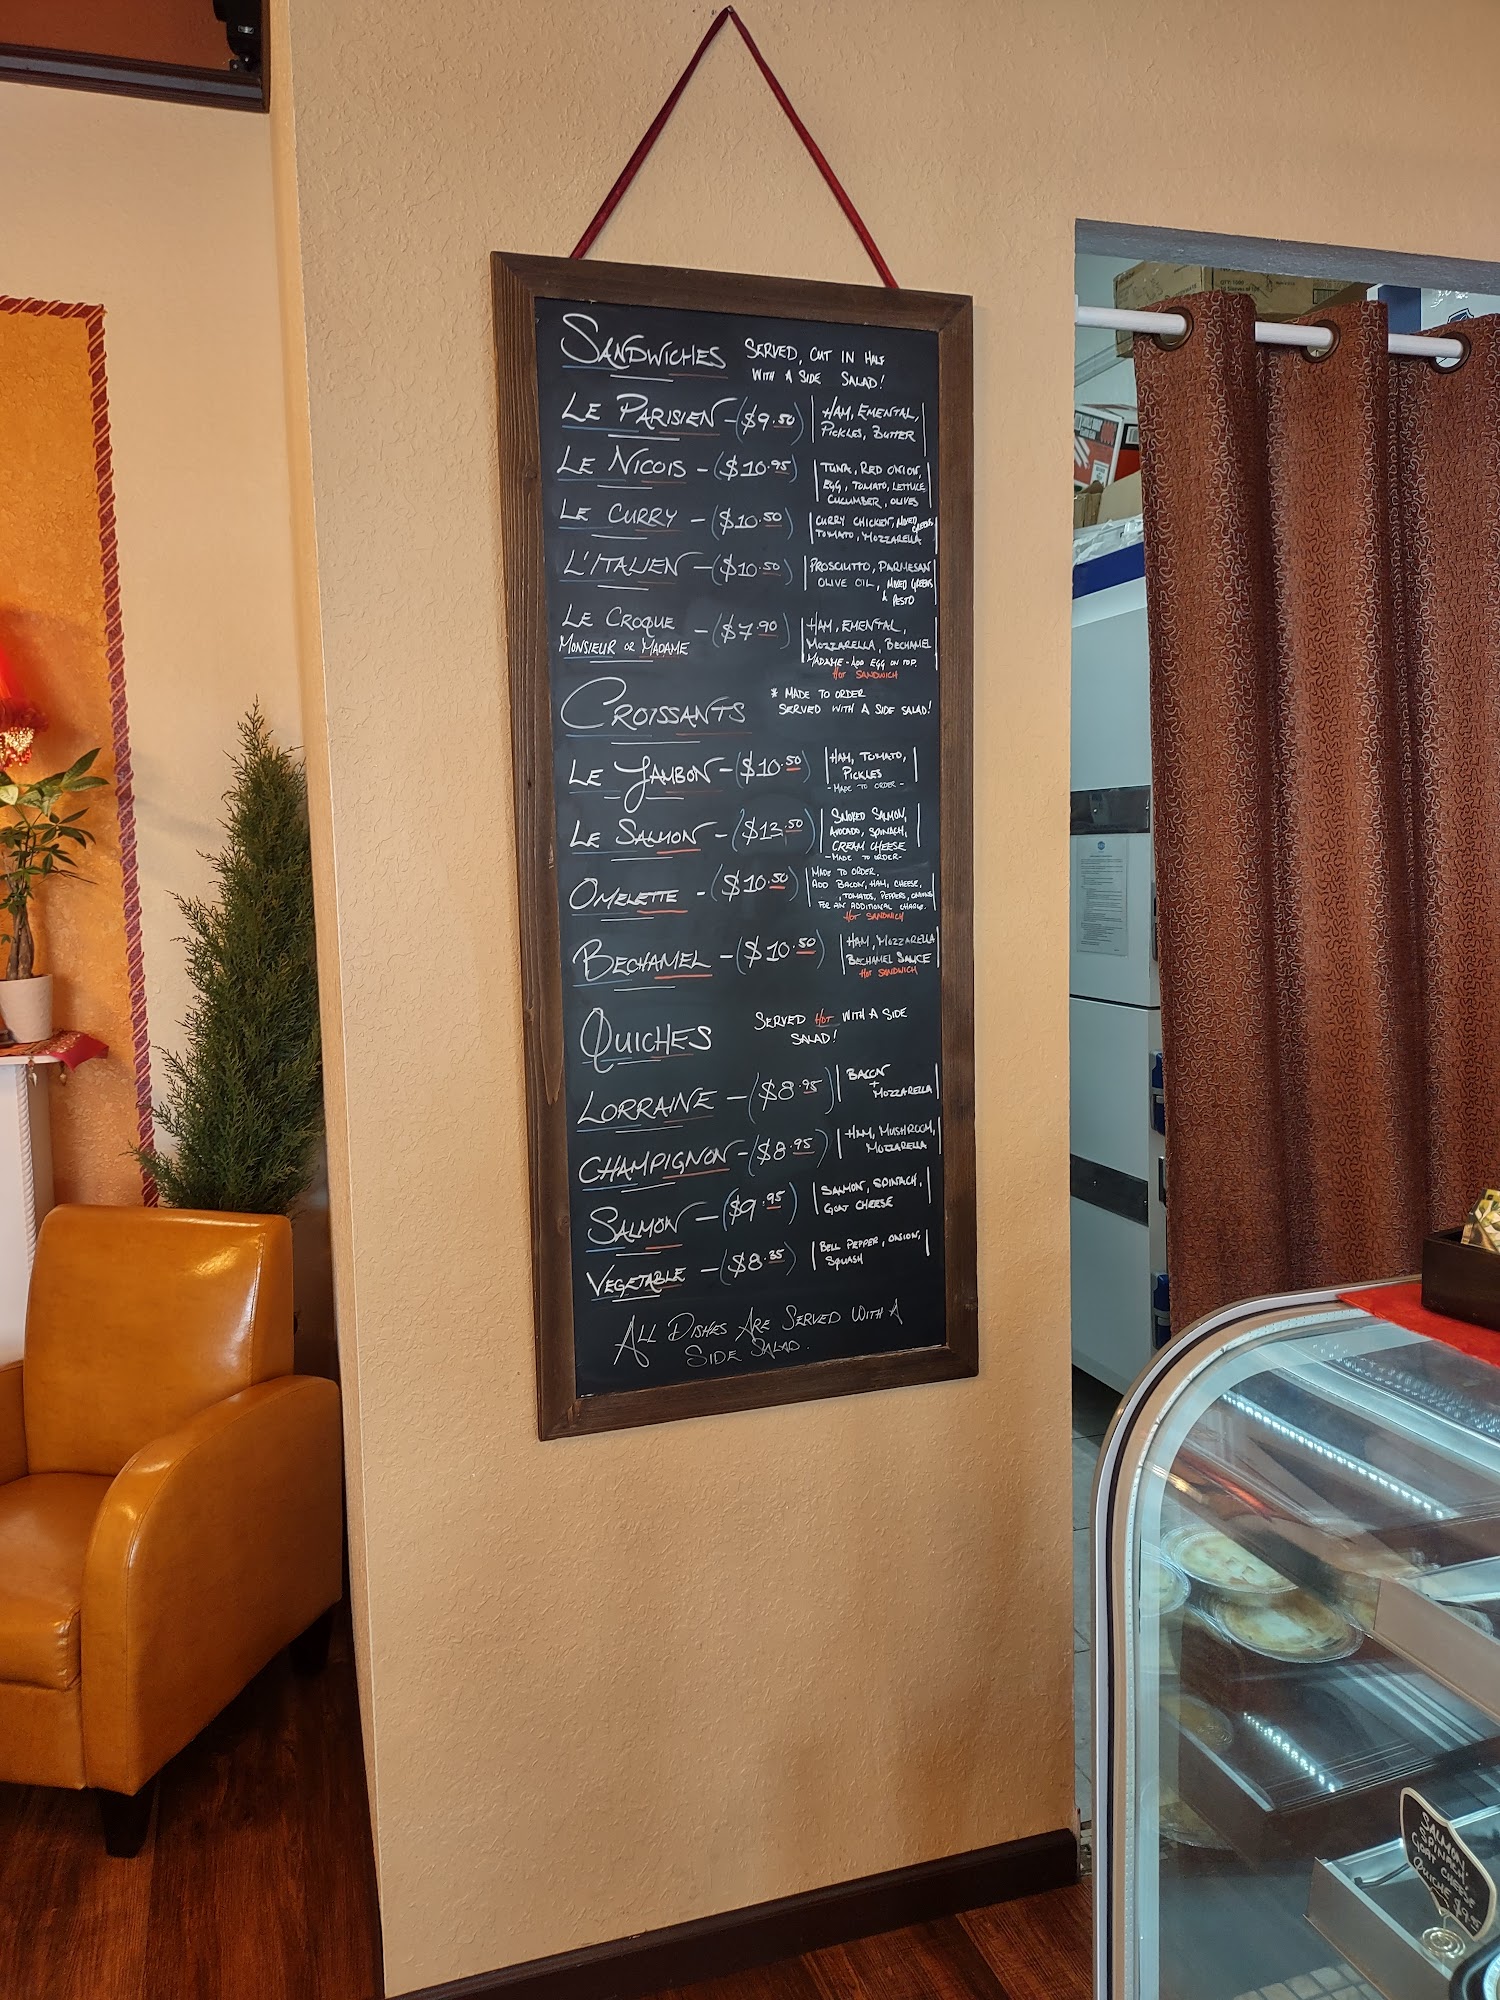 SANDWICHES SERVED, CUT IN HALF
WITH A SIDE SALAD!
LE PARISIEN - ($9.50) HAM, EMENTAL,
PICKLES, BUTTER
LE NICOIS - ($10.95) TUNA, RED ONION,
EGG, TOMATO, LETTUCE
CUCUMBER, OLIVES
LE CURRY - ($10.50) CURRY CHICKEN, MIXED GREENS
TOMATO, MOZZARELLA
L'ITALIEN - ($10.50) PROSCIUTTO, PARMESAN
OLIVE OIL, MIXED GREENS
& PESTO
LE CROQUE
MONSIEUR OR MADAME - ($7.90) HAM, EMENTAL,
MOZZARELLA, BECHAMEL
MADAME - ADD EGG ON TOP.
HOT SANDWICH
CROISSANTS * MADE TO ORDER
SERVED WITH A SIDE SALAD!
LE JAMBON - ($10.50) HAM, TOMATO,
PICKLES
- MADE TO ORDER -
LE SALMON - ($13.50) SMOKED SALMON,
AVOCADO, SPINACH,
CREAM CHEESE
- MADE TO ORDER -
OMELETTE - ($10.50) MADE TO ORDER,
ADD BACON, HAM, CHEESE,
TOMATOES, PEPPERS, ONIONS
FOR AN ADDITIONAL CHARGE.
HOT SANDWICH
BECHAMEL - ($10.50) HAM, MOZZARELLA
BECHAMEL SAUCE
HOT SANDWICH
QUICHES SERVED HOT WITH A SIDE
SALAD!
LORRAINE - ($8.95) BACON
+ MOZZARELLA
CHAMPIGNON - ($8.95) HAM, MUSHROOM,
MOZZARELLA
SALMON - ($9.95) SALMON, SPINACH,
GOAT CHEESE
VEGETABLE - ($8.35) BELL PEPPER, ONION,
SQUASH
ALL DISHES ARE SERVED WITH A
SIDE SALAD.
SALMON,
SPINACH,
GOAT CHEESE
QUICHE $9.95